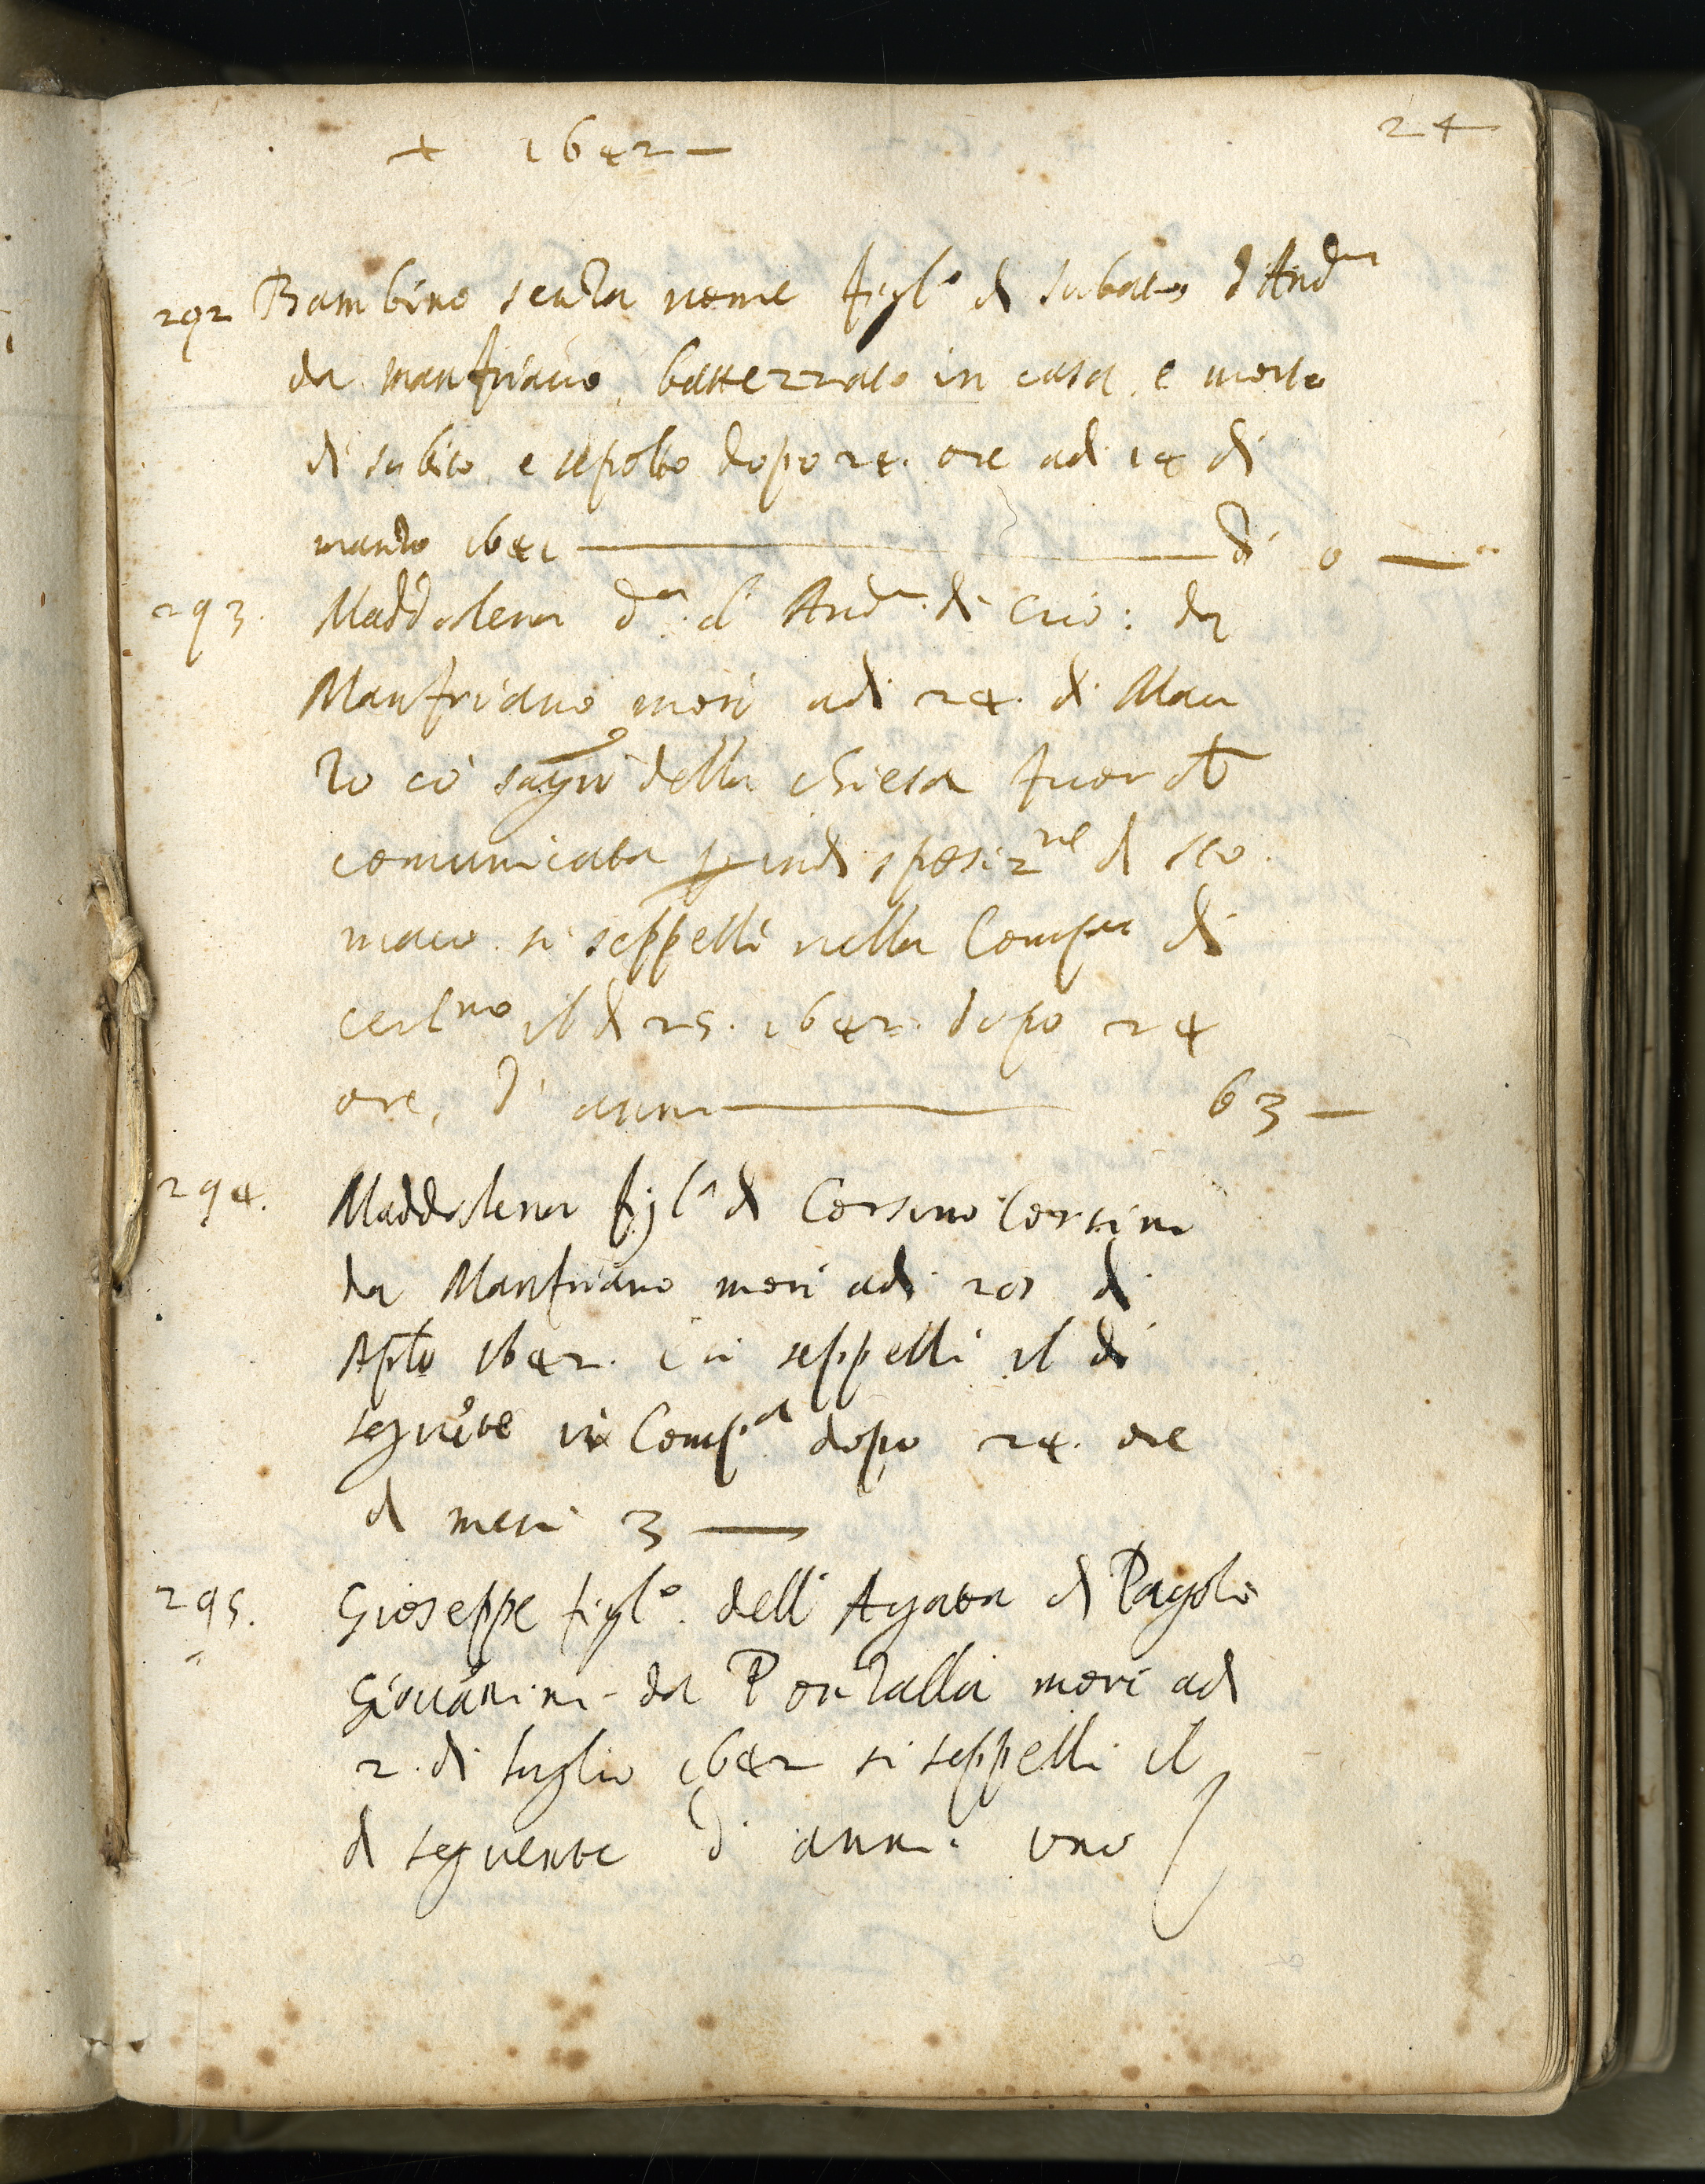 + 1642 —
24
292 Bambino senza nome figl.º di Sabato d'And.ª
da manfriano, battezzato in casa, e morto
di subito, e sepolto dopo 24. ore adi 14 di
marzo 1641 — dì 0 —
293. Maddalena d.ª d' And.ª di Gio: da
Manfriano morì adi 24. di Mar
zo cō sagr.ⁱ della chiesa fuor ch
comunicata p indisposiz.ne di sto
maco. si seppellì nella Comp.a di
Cerl.no il dì 25. 1642. dopo 24
ore, d' anni — 63 —
294. Maddalena figl.ª di Corsino Corsini
da Manfriano morì adi 20 di
Aple 1642. e si seppellì il dì
seguēte in Comp.ª dopo 24. ore
di mesi 3 —
295. Gioseppe figl.º dell' Agata di Pagolo
Giovannini da Ponzalla morì adi
2. di luglio 1642 si seppellì il
dì seguente d' anni uno